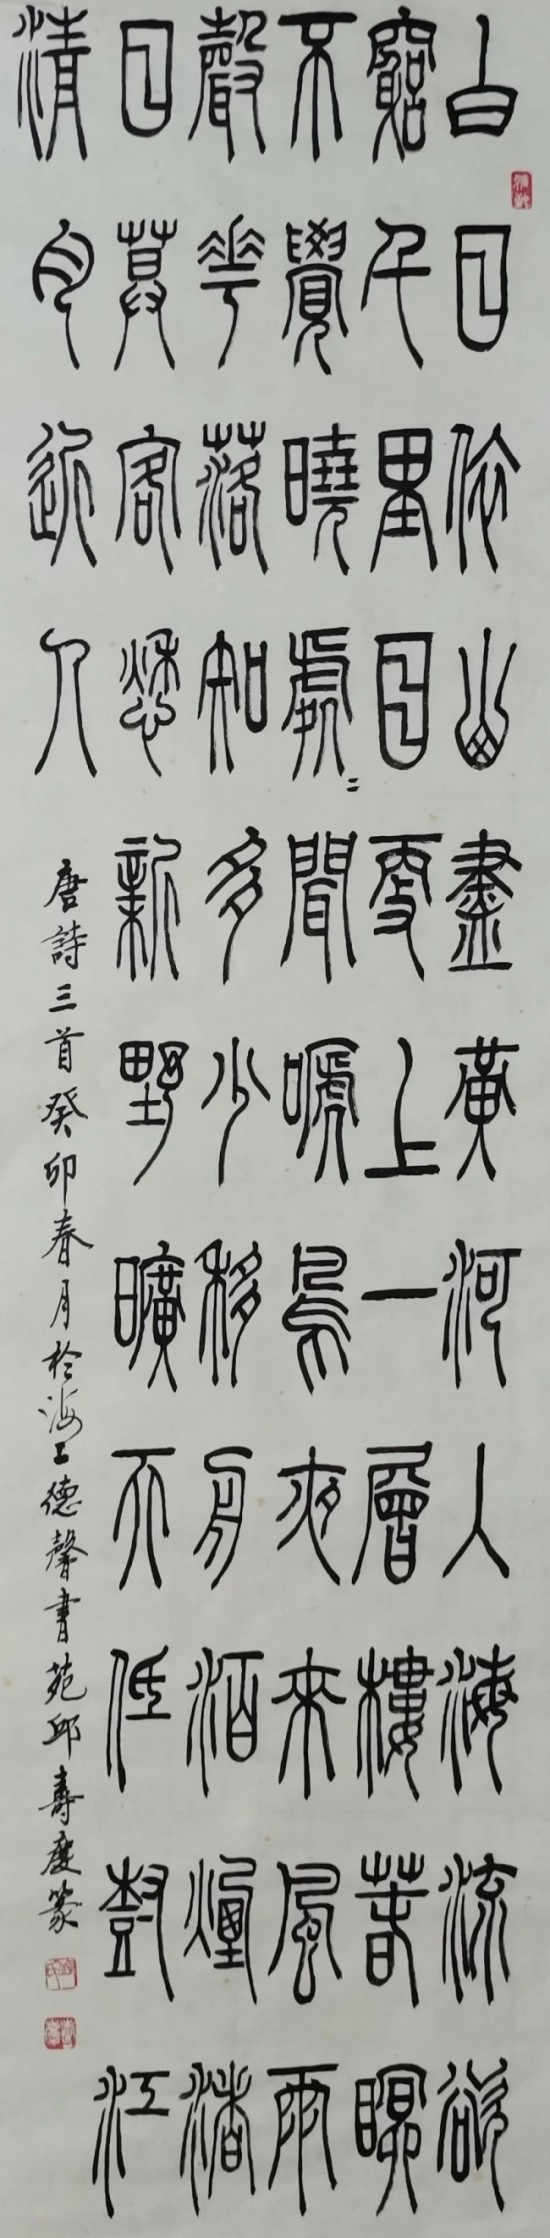 白日依山盡黃河入海流欲
窮千里目更上一層樓春眠
不覺曉處〻聞嗁鳥夜來風雨
聲花落知多少移舟泊煙渚
日暮客愁新野曠天低樹江
清月近人
唐詩三首癸卯春月於海上德馨書苑邱壽慶篆